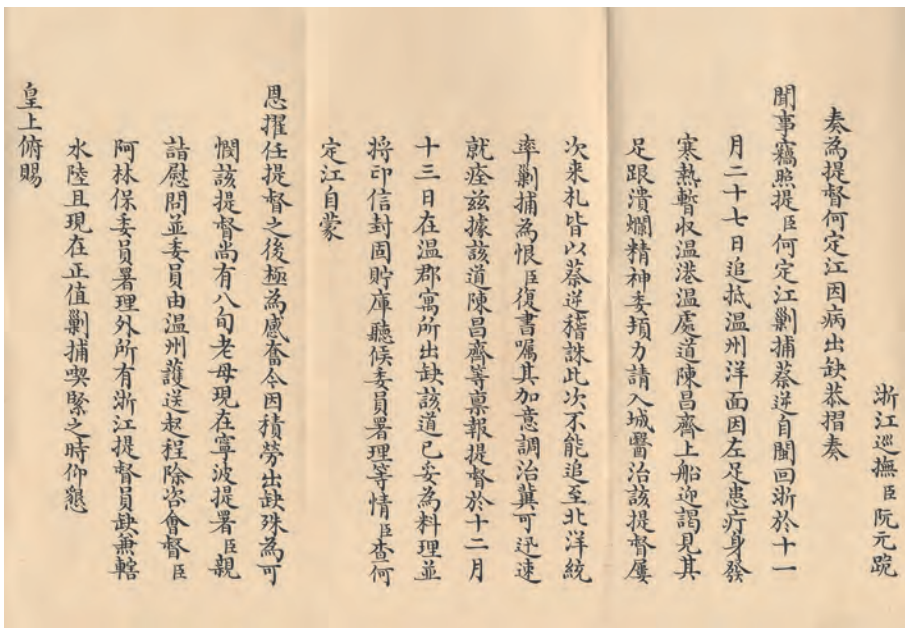 浙江巡撫臣阮元跪
奏為提督何定江因病出缺恭摺奏
聞事竊照提臣何定江剿捕蔡逆自閩回浙於十一
月二十七日追抵温州洋面因左足患疔身發
寒熱暫收温港温處道陳昌齊上船迎謁見其
足跟潰爛精神委頓力請入城醫治該提督屢
次来札皆以蔡逆稽誅此次不能追至北洋統
率剿捕為恨臣復書嘱其加意調治冀可迅速
就痊兹據該道陳昌齊等禀報提督於十二月
十三日在温郡寓所出缺該道已妥為料理並
将印信封固貯庫聽候委員署理等情臣查何
定江自蒙
恩擢任提督之後極為感奮今因積勞出缺殊為可
憫該提督尚有八旬老母現在寧波提署臣親
詣慰問並委員由温州護送起程除咨會督臣
阿林保委員署理外所有浙江提督員缺兼轄
水陸且現在正值剿捕喫緊之時仰懇
皇上俯賜